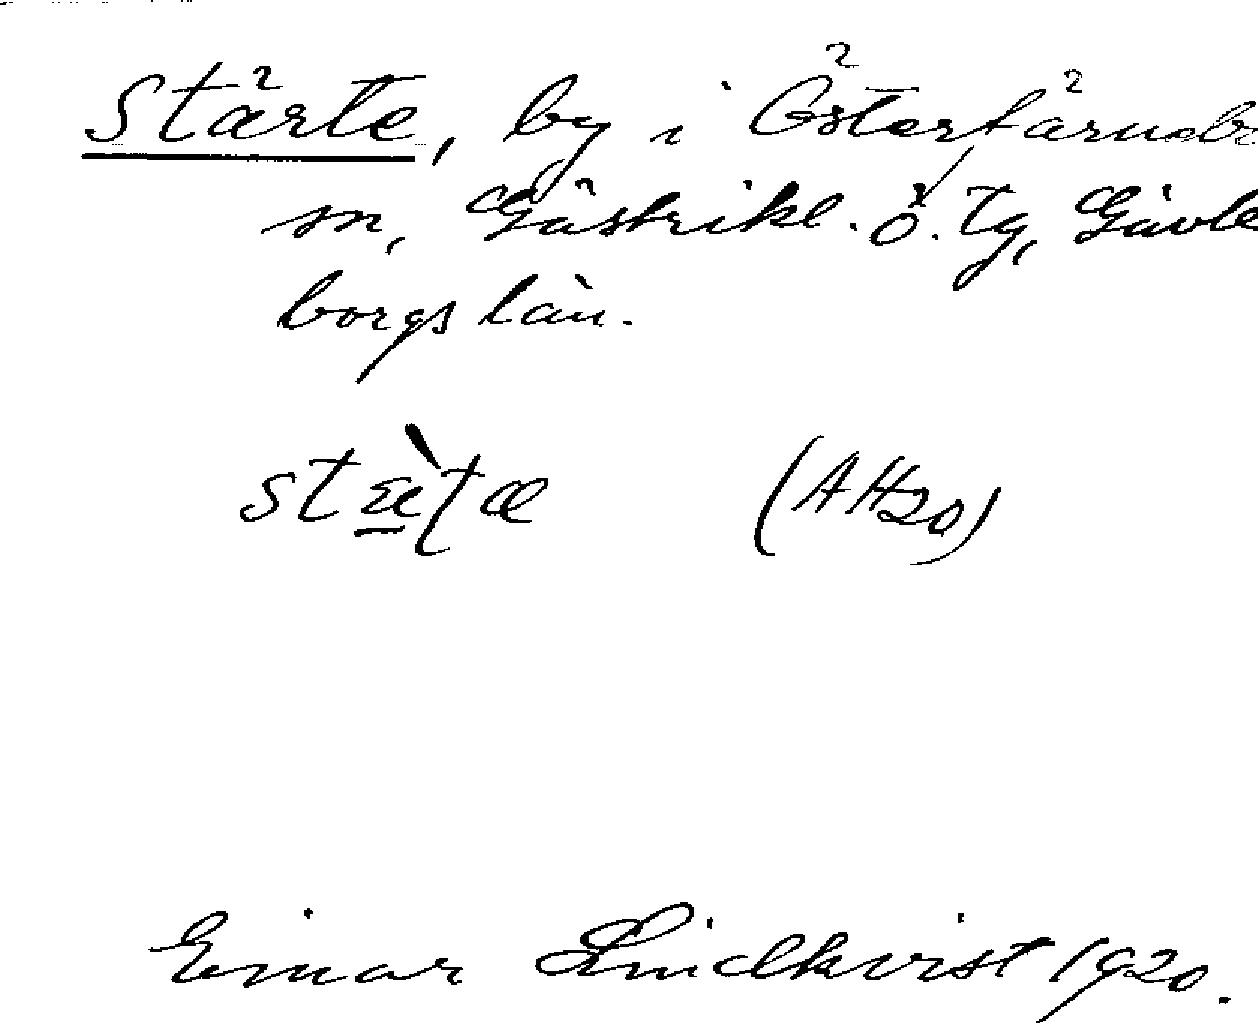 Stärte, by i Österfärnebo
sn, Gästrikl. ö. tg, Gävle
borgs län.
(AH20)
Einar Lindkvist 1920.